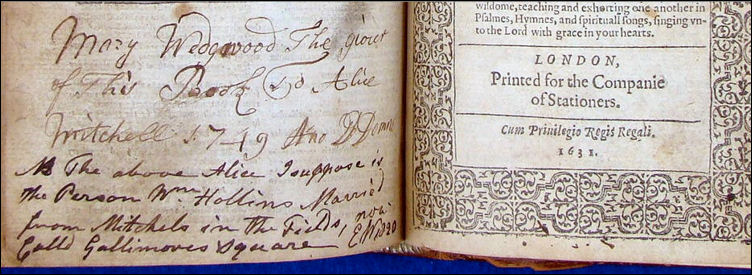 Mary Wedgwood The giver
of This Book to Alice
Mitchell 1749 Ano D Domini
NB The above Alice I suppose is
the Person Wm Hollins Married
from Mitchels in the Fields, now
Calld Gallimores Square
wisdome, teaching and exhorting one another in
Psalmes, Hymnes, and spirituall songs, singing un-
to the Lord with grace in your hearts.
LONDON,
Printed for the Companie
of Stationers.
Cum Privilegio Regis Regali.
1631.